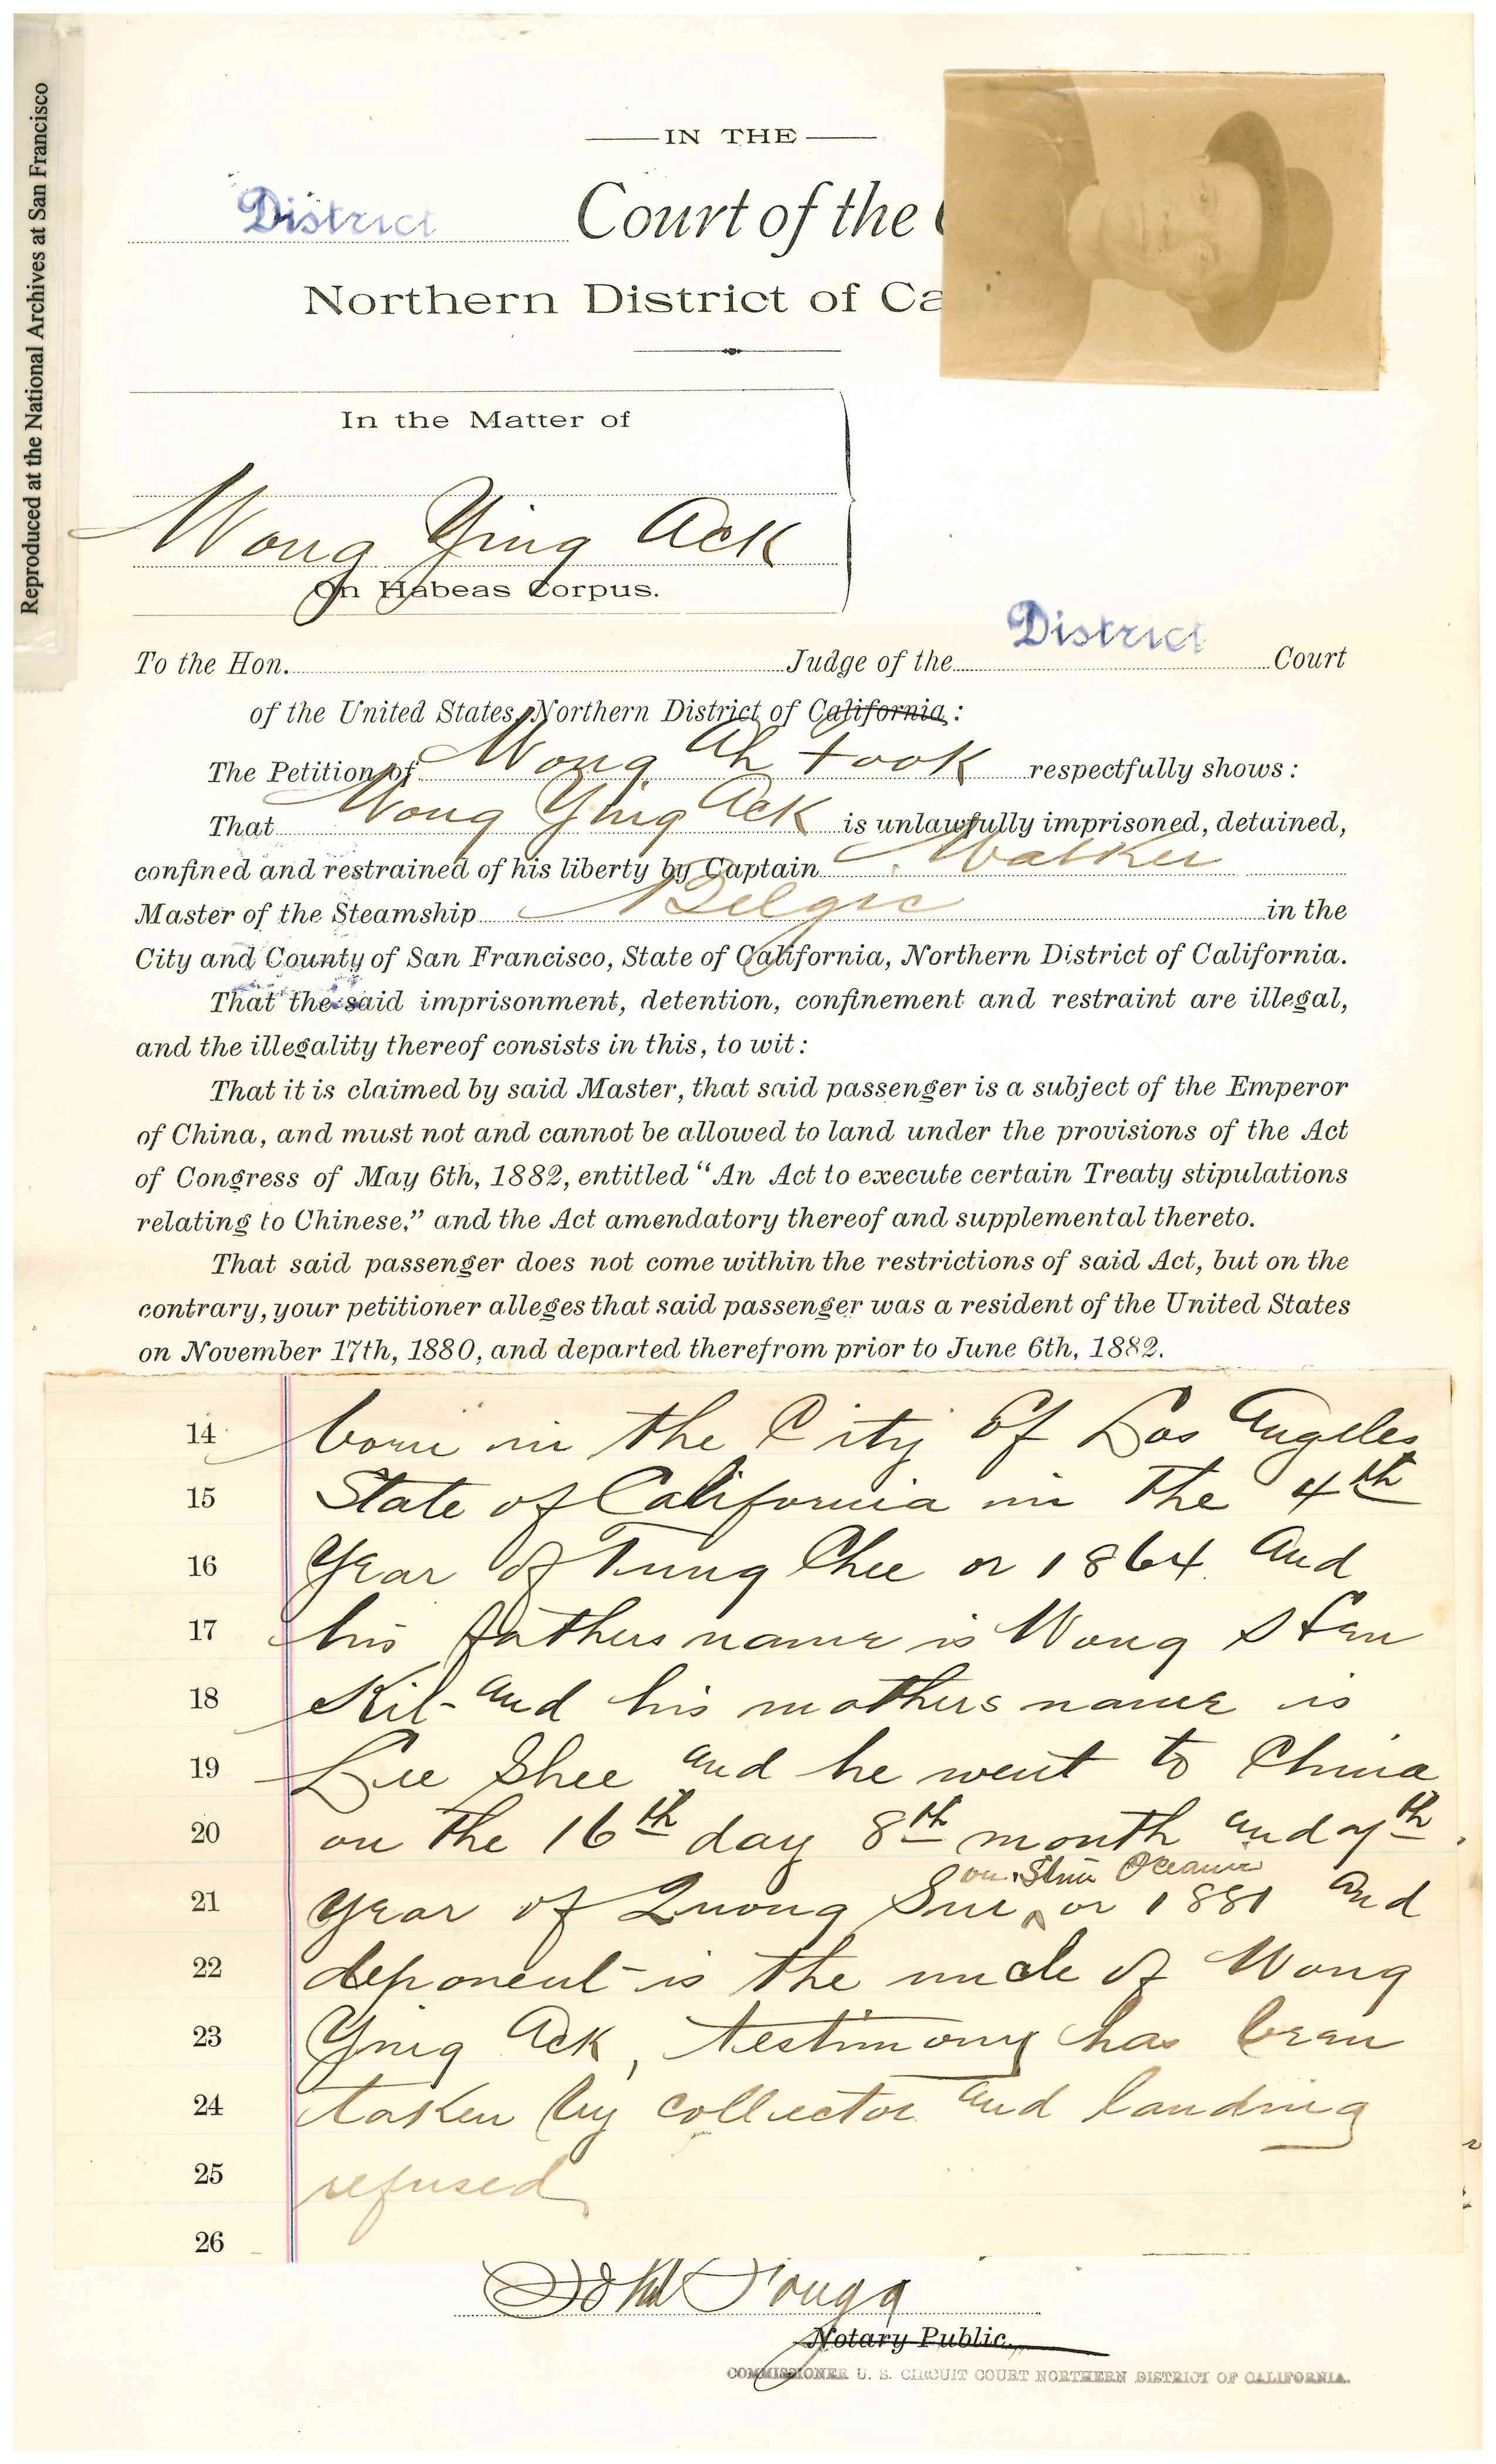 Reproduced at the National Archives at San Francisco
IN THE
District Court of the
Northern District of Ca
In the Matter of
Wong Ying Ack
On Habeas Corpus.
To the Hon. Judge of the District Court
of the United States, Northern District of California:
The Petition of Wong Ah Fook respectfully shows:
That Wong Ying Ack is unlawfully imprisoned, detained,
confined and restrained of his liberty by Captain Walker
Master of the Steamship Belgic in the
City and County of San Francisco, State of California, Northern District of California.
That the said imprisonment, detention, confinement and restraint are illegal,
and the illegality thereof consists in this, to wit:
That it is claimed by said Master, that said passenger is a subject of the Emperor
of China, and must not and cannot be allowed to land under the provisions of the Act
of Congress of May 6th, 1882, entitled “An Act to execute certain Treaty stipulations
relating to Chinese,” and the Act amendatory thereof and supplemental thereto.
That said passenger does not come within the restrictions of said Act, but on the
contrary, your petitioner alleges that said passenger was a resident of the United States
on November 17th, 1880, and departed therefrom prior to June 6th, 1882.
14 born in the City of Los Angeles
15 State of California in the 4th
16 Year of Tung Chee or 1864 and
17 his fathers name is Wong
18 and his mothers name is
19 Lee Shee and he went to China
20 on the 16th day 8th month and 7th
on Stmr Oceanic
21 year of Quong Sui or 1881 and
22 deponent is the uncle of Wong
23 Ying Ack, testimony has been
24 taken by collector and landing
25 refused
26
Notary Public.
COMMISSIONER U. S. CIRCUIT COURT NORTHERN DISTRICT OF CALIFORNIA.